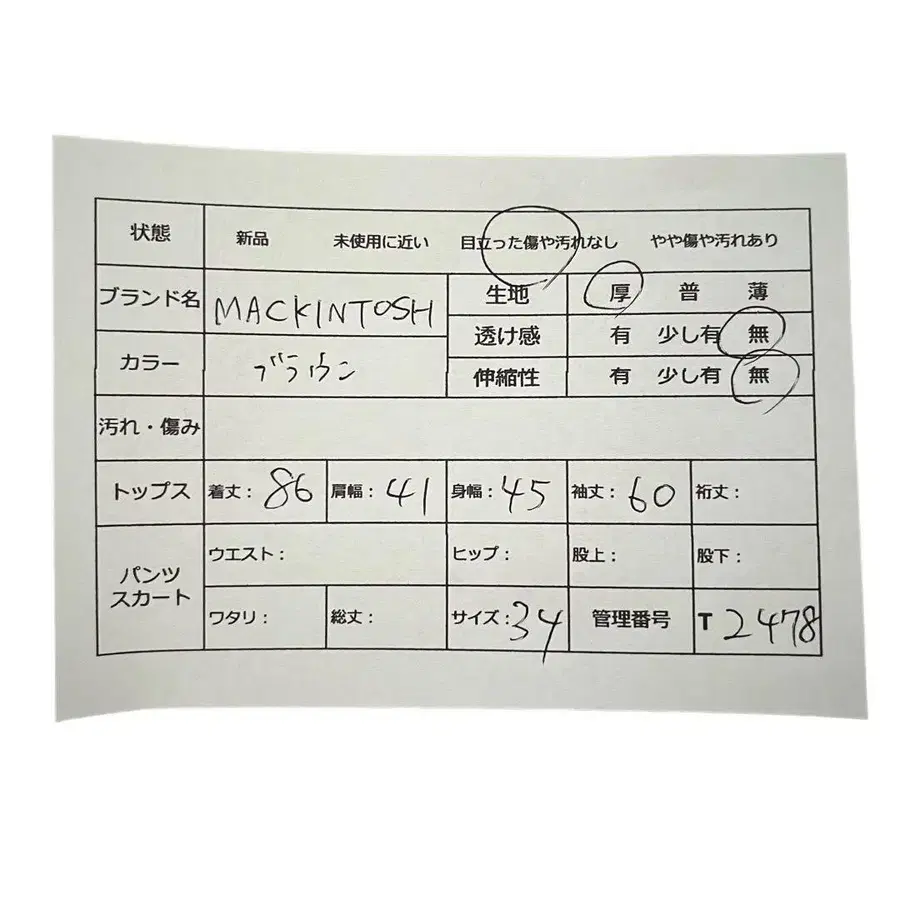 状態 新品 未使用に近い 目立った傷や汚れなし やや傷や汚れあり
ブランド名 MACKINTOSH 生地 厚 普 薄
透け感 有 少し有 無
カラー ブラウン 伸縮性 有 少し有 無
汚れ・傷み
トップス 着丈: 86 肩幅: 41 身幅: 45 袖丈: 60 裄丈:
パンツ スカート ウエスト: ヒップ: 股上: 股下:
ワタリ: 総丈: サイズ: 34 管理番号 T 2478